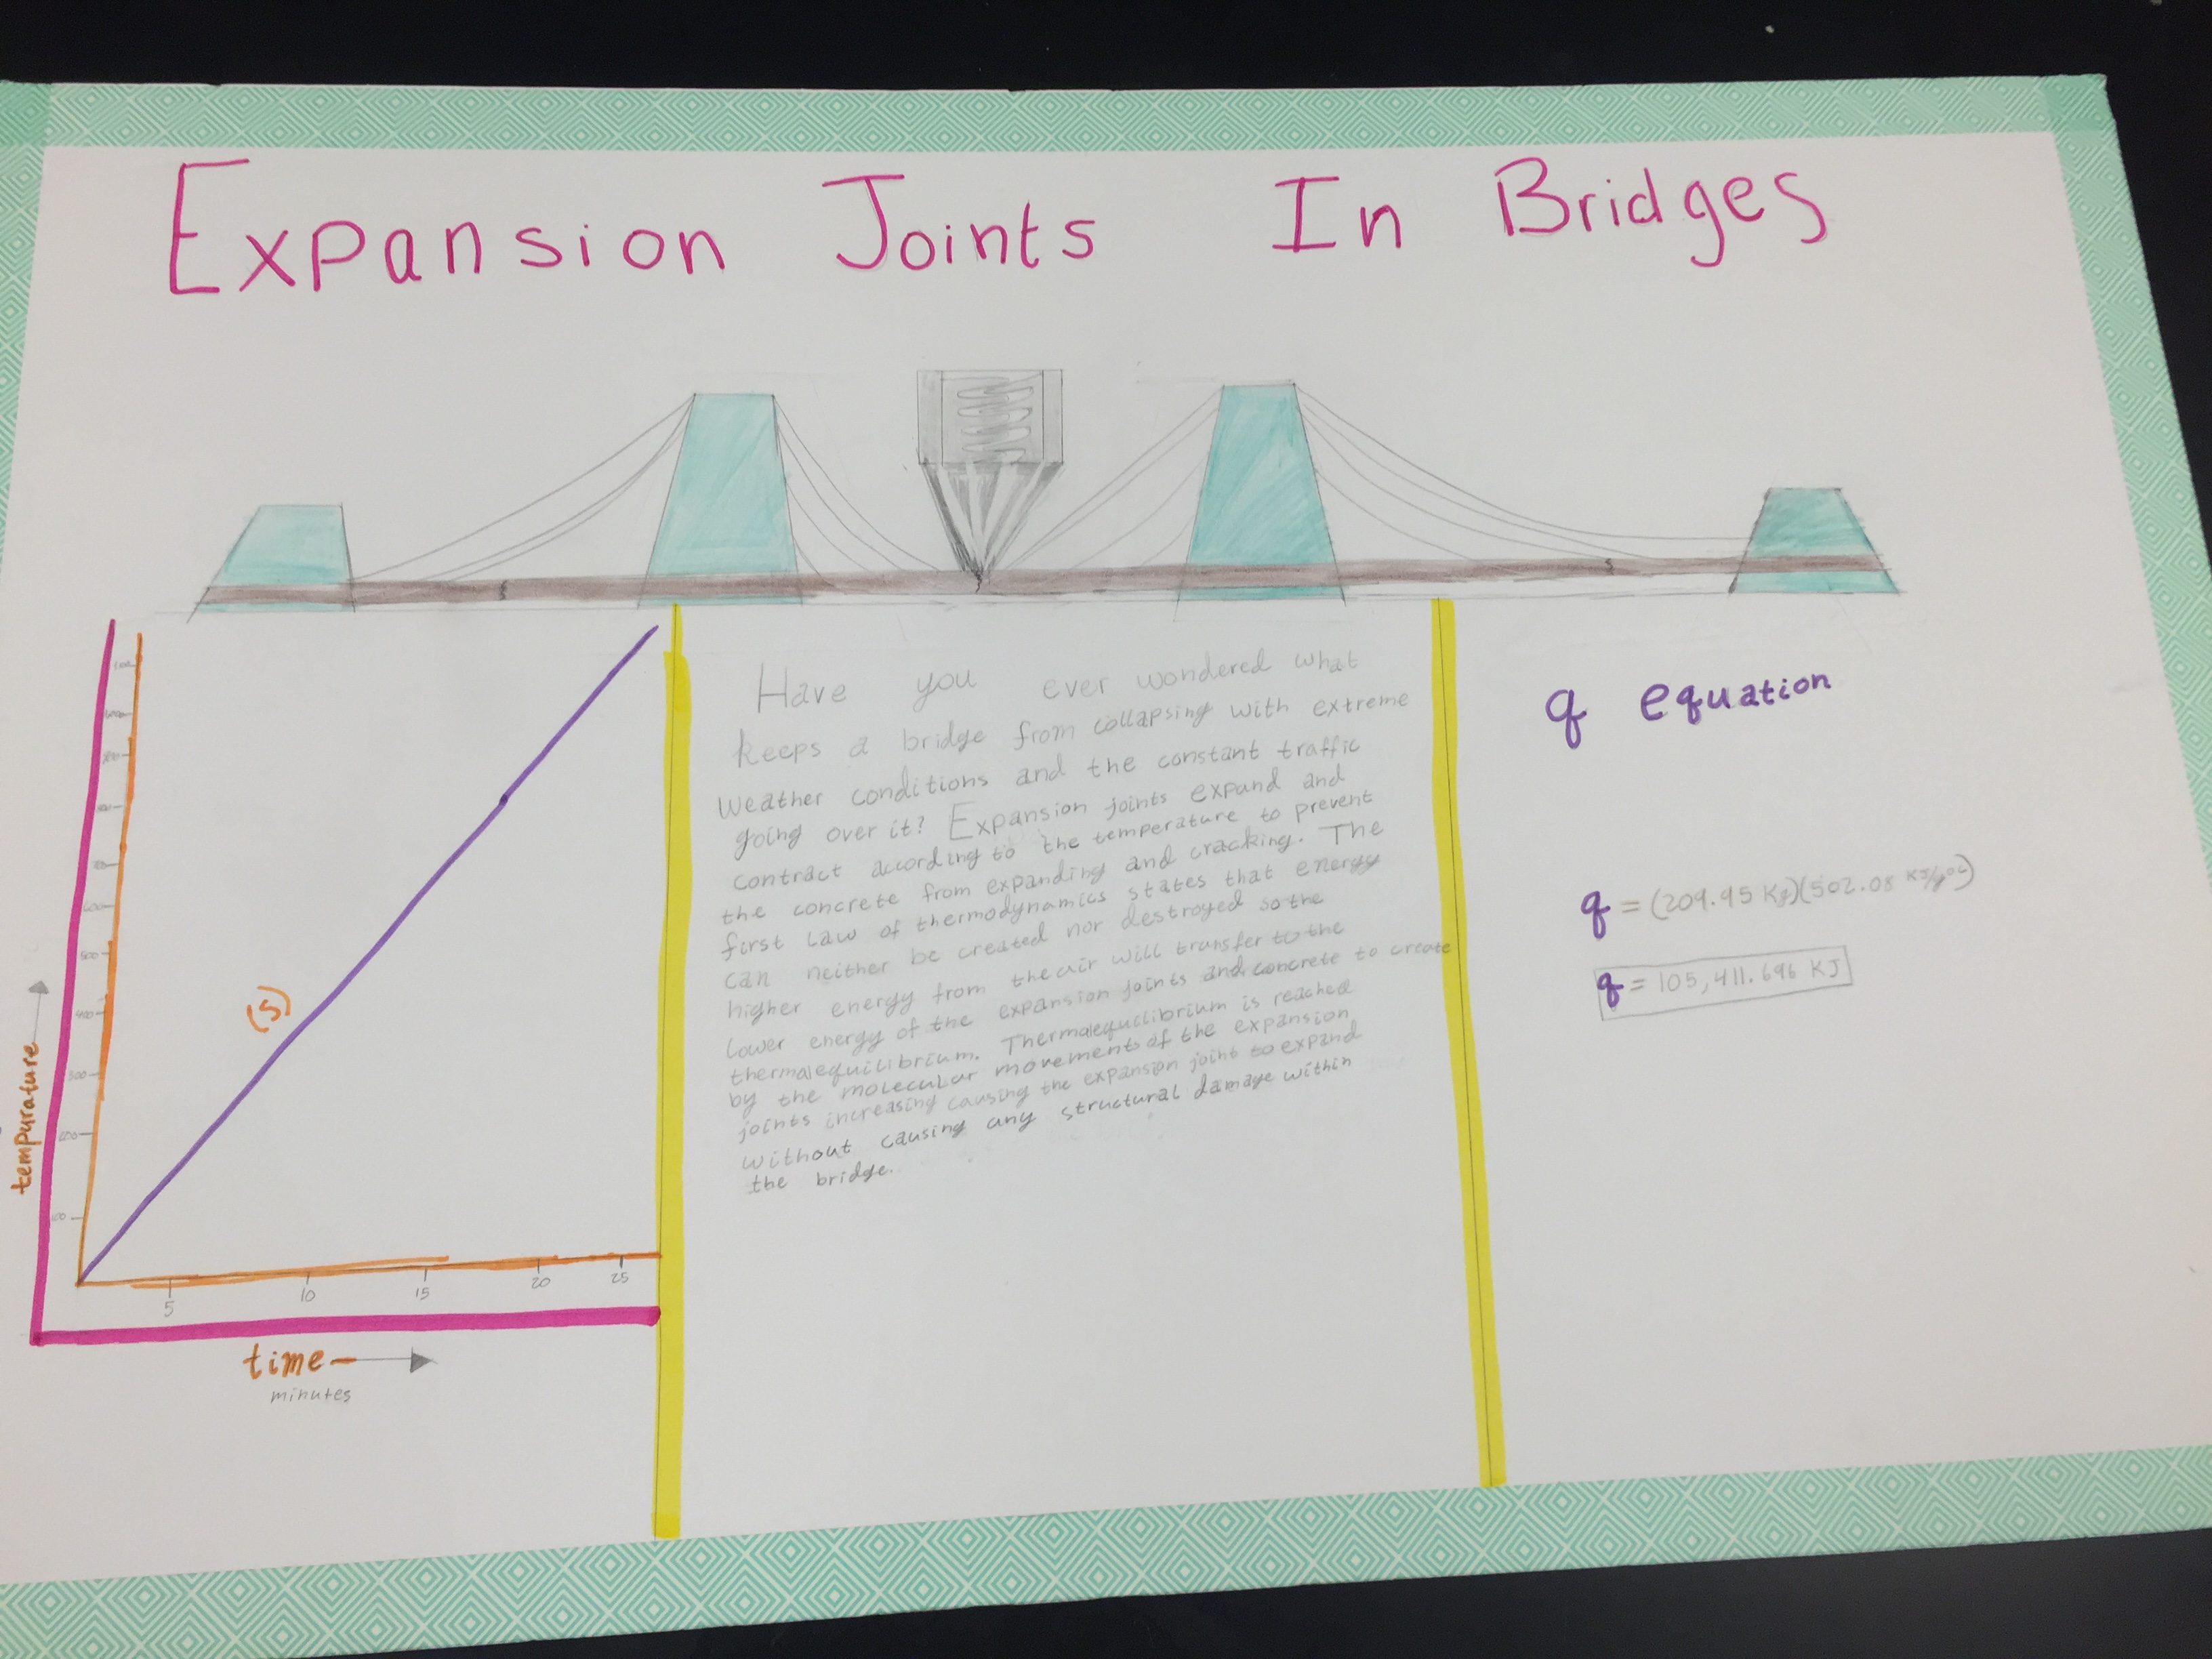 Expansion Joints In Bridges
Have you ever wondered what
keeps a bridge from collapsing with extreme
weather conditions and the constant traffic
going over it? Expansion joints expand and
contract according to the temperature to prevent
the concrete from expanding and cracking. The
first law of thermodynamics states that energy
can neither be created nor destroyed so the
higher energy from the air will transfer to the
lower energy of the expansion joints and concrete to create
thermalequilibrium. Thermalequilibrium is reached
by the molecular movements of the expansion
joints increasing causing the expansion joint to expand
without causing any structural damage within
the bridge.
q equation
q = (209.95 Kg)(502.08 KJ/g°C)
q = 105,411.696 KJ
tempurature
500
400
300
200
100
(S)
5 10 15 20 25
time
minutes